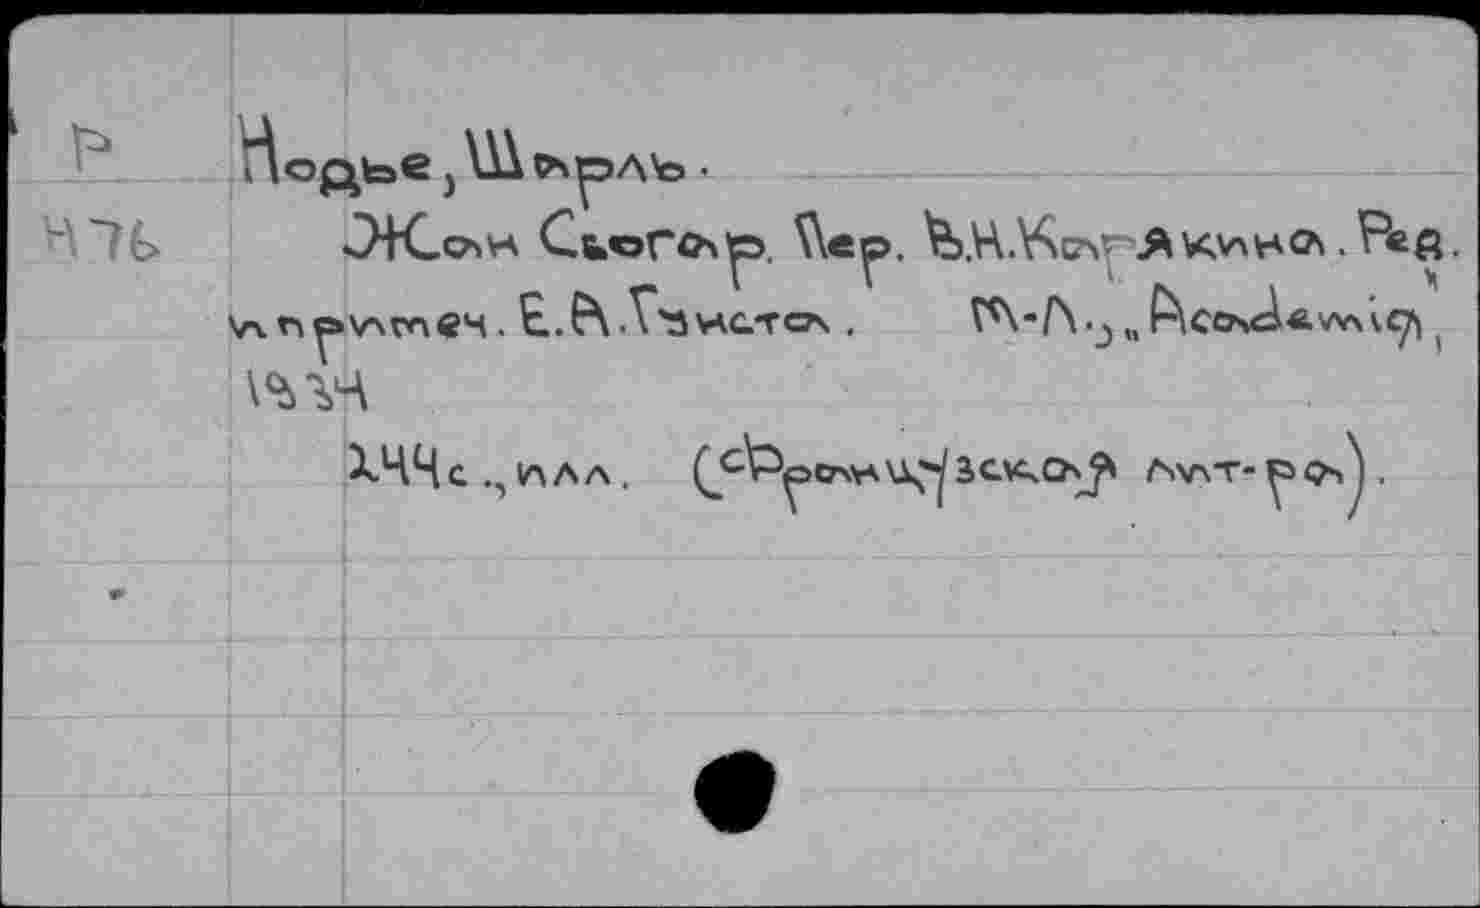 Р Нодье, Шарль.
Н76 Жан Сбогар. Пер. В.Н.Карякина. Ред.
и примеч. Е.А.Гунста. М-Л., „Academia",
1934
XЧЧс., илл. (Французская лит-ра).